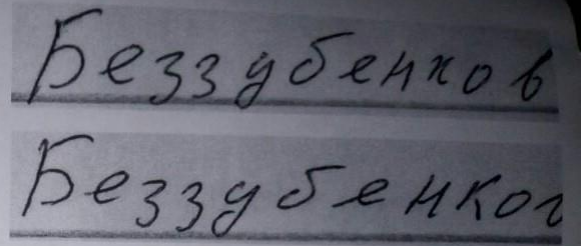 Беззубенков
Беззубенког